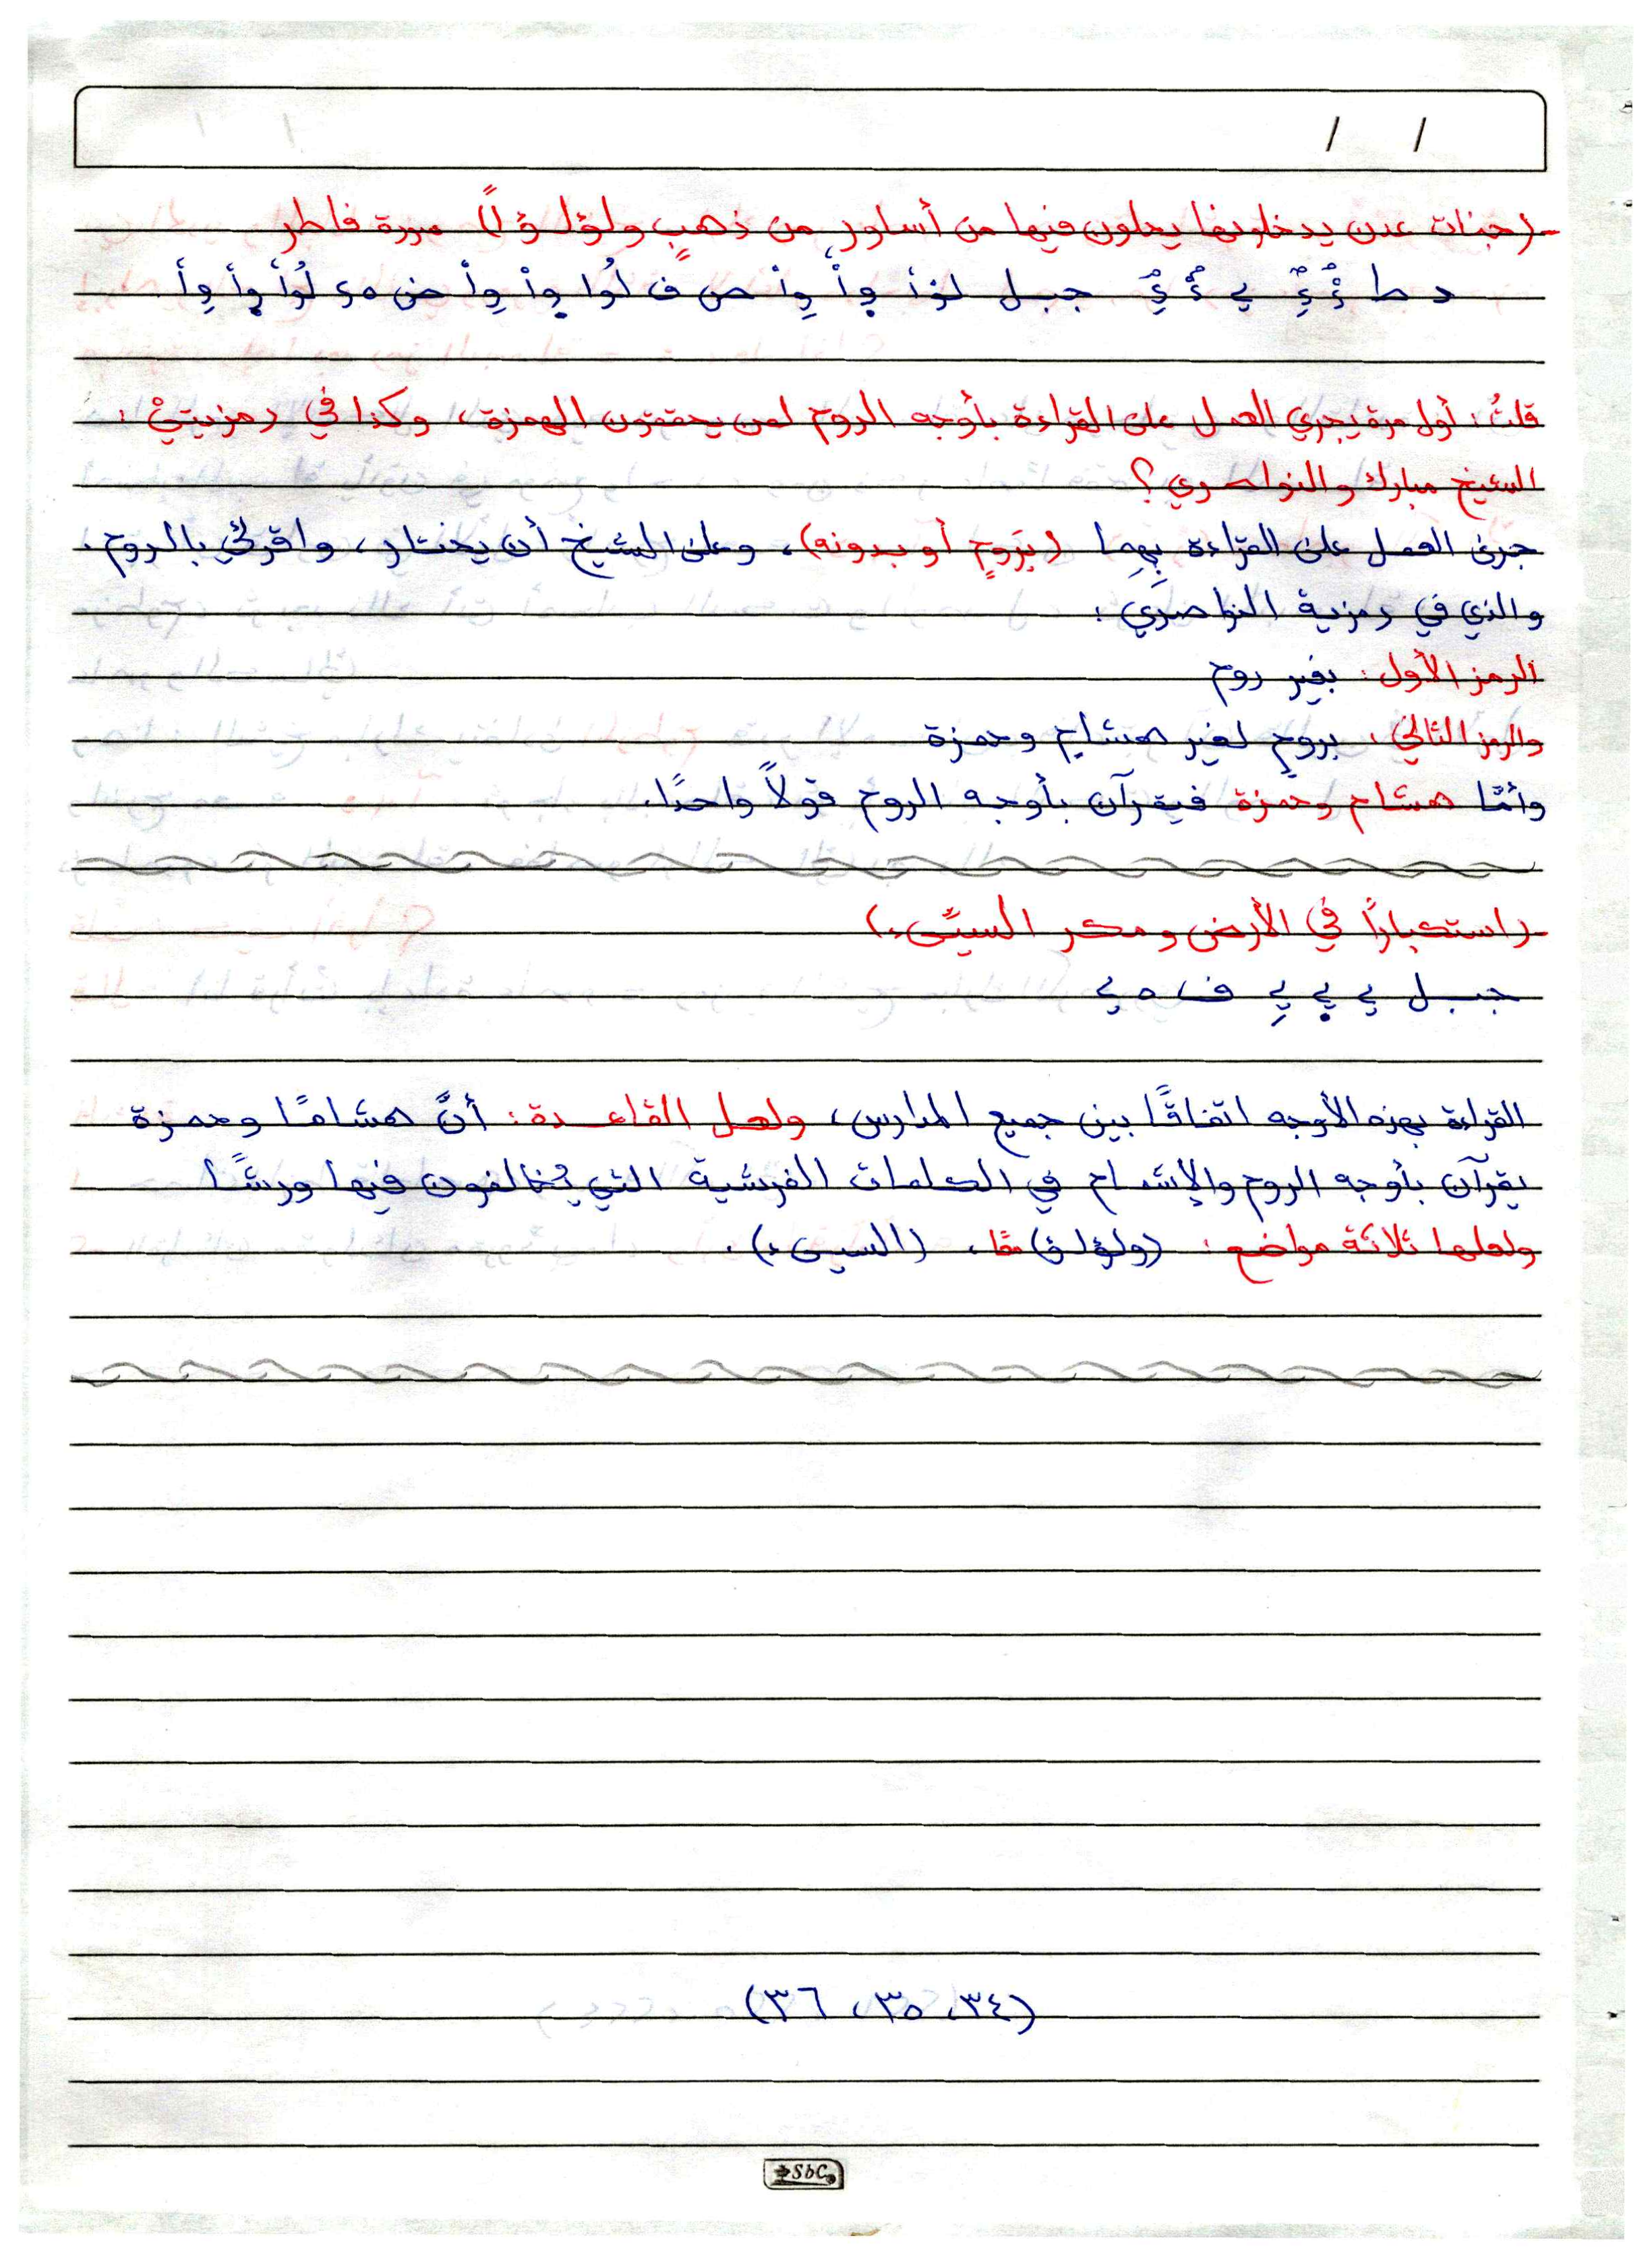 / /
(جنات عدن يدخلونها يحلون فيها من أساور من ذهبٍ ولؤلؤاً) سورة فاطر
د ط ؤْ ئٍ ي ؤْ ئٍ جبل لؤأ وأ وأ ص ف لُوا وأ وأ ض ه لُوأ وأ وأ
قلتُ: أول مرة يجري العمل على القراءة بأوجه الروم لمن يحققون الهمزة، وكذا في رمزيتيْ:
الشيخ مبارك والنواصري؟
جرى العمل على القراءة بِهِما (بِرَومٍ أو بدونه)، وعلى الشيخ أن يختار، واقرئي بالروم.
والذي في رمزية النواصري:
الرمز الأول: بغير روم
والرمز الثاني: برومٍ لغير هشام وحمزة
وأمّا هشام وحمزة فيقرآن بأوجه الروم قولاً واحدًا.
(استكباراً في الأرض ومكر السيّئ)
جبل ي ي ي ف ه ي
القراءة بهذه الأوجه اتفاقًا بين جميع المدارس، ولعل القاعدة: أنَّ هشامًا وحمزة
يقرآن بأوجه الروم والإشمام في الكلمات الفرشية التي يُخالفون فيها ورشًا
ولعلها ثلاثة مواضع: (ولؤلؤ) معًا، (السيئ).
(٣٤، ٣٥، ٣٦)
SbC